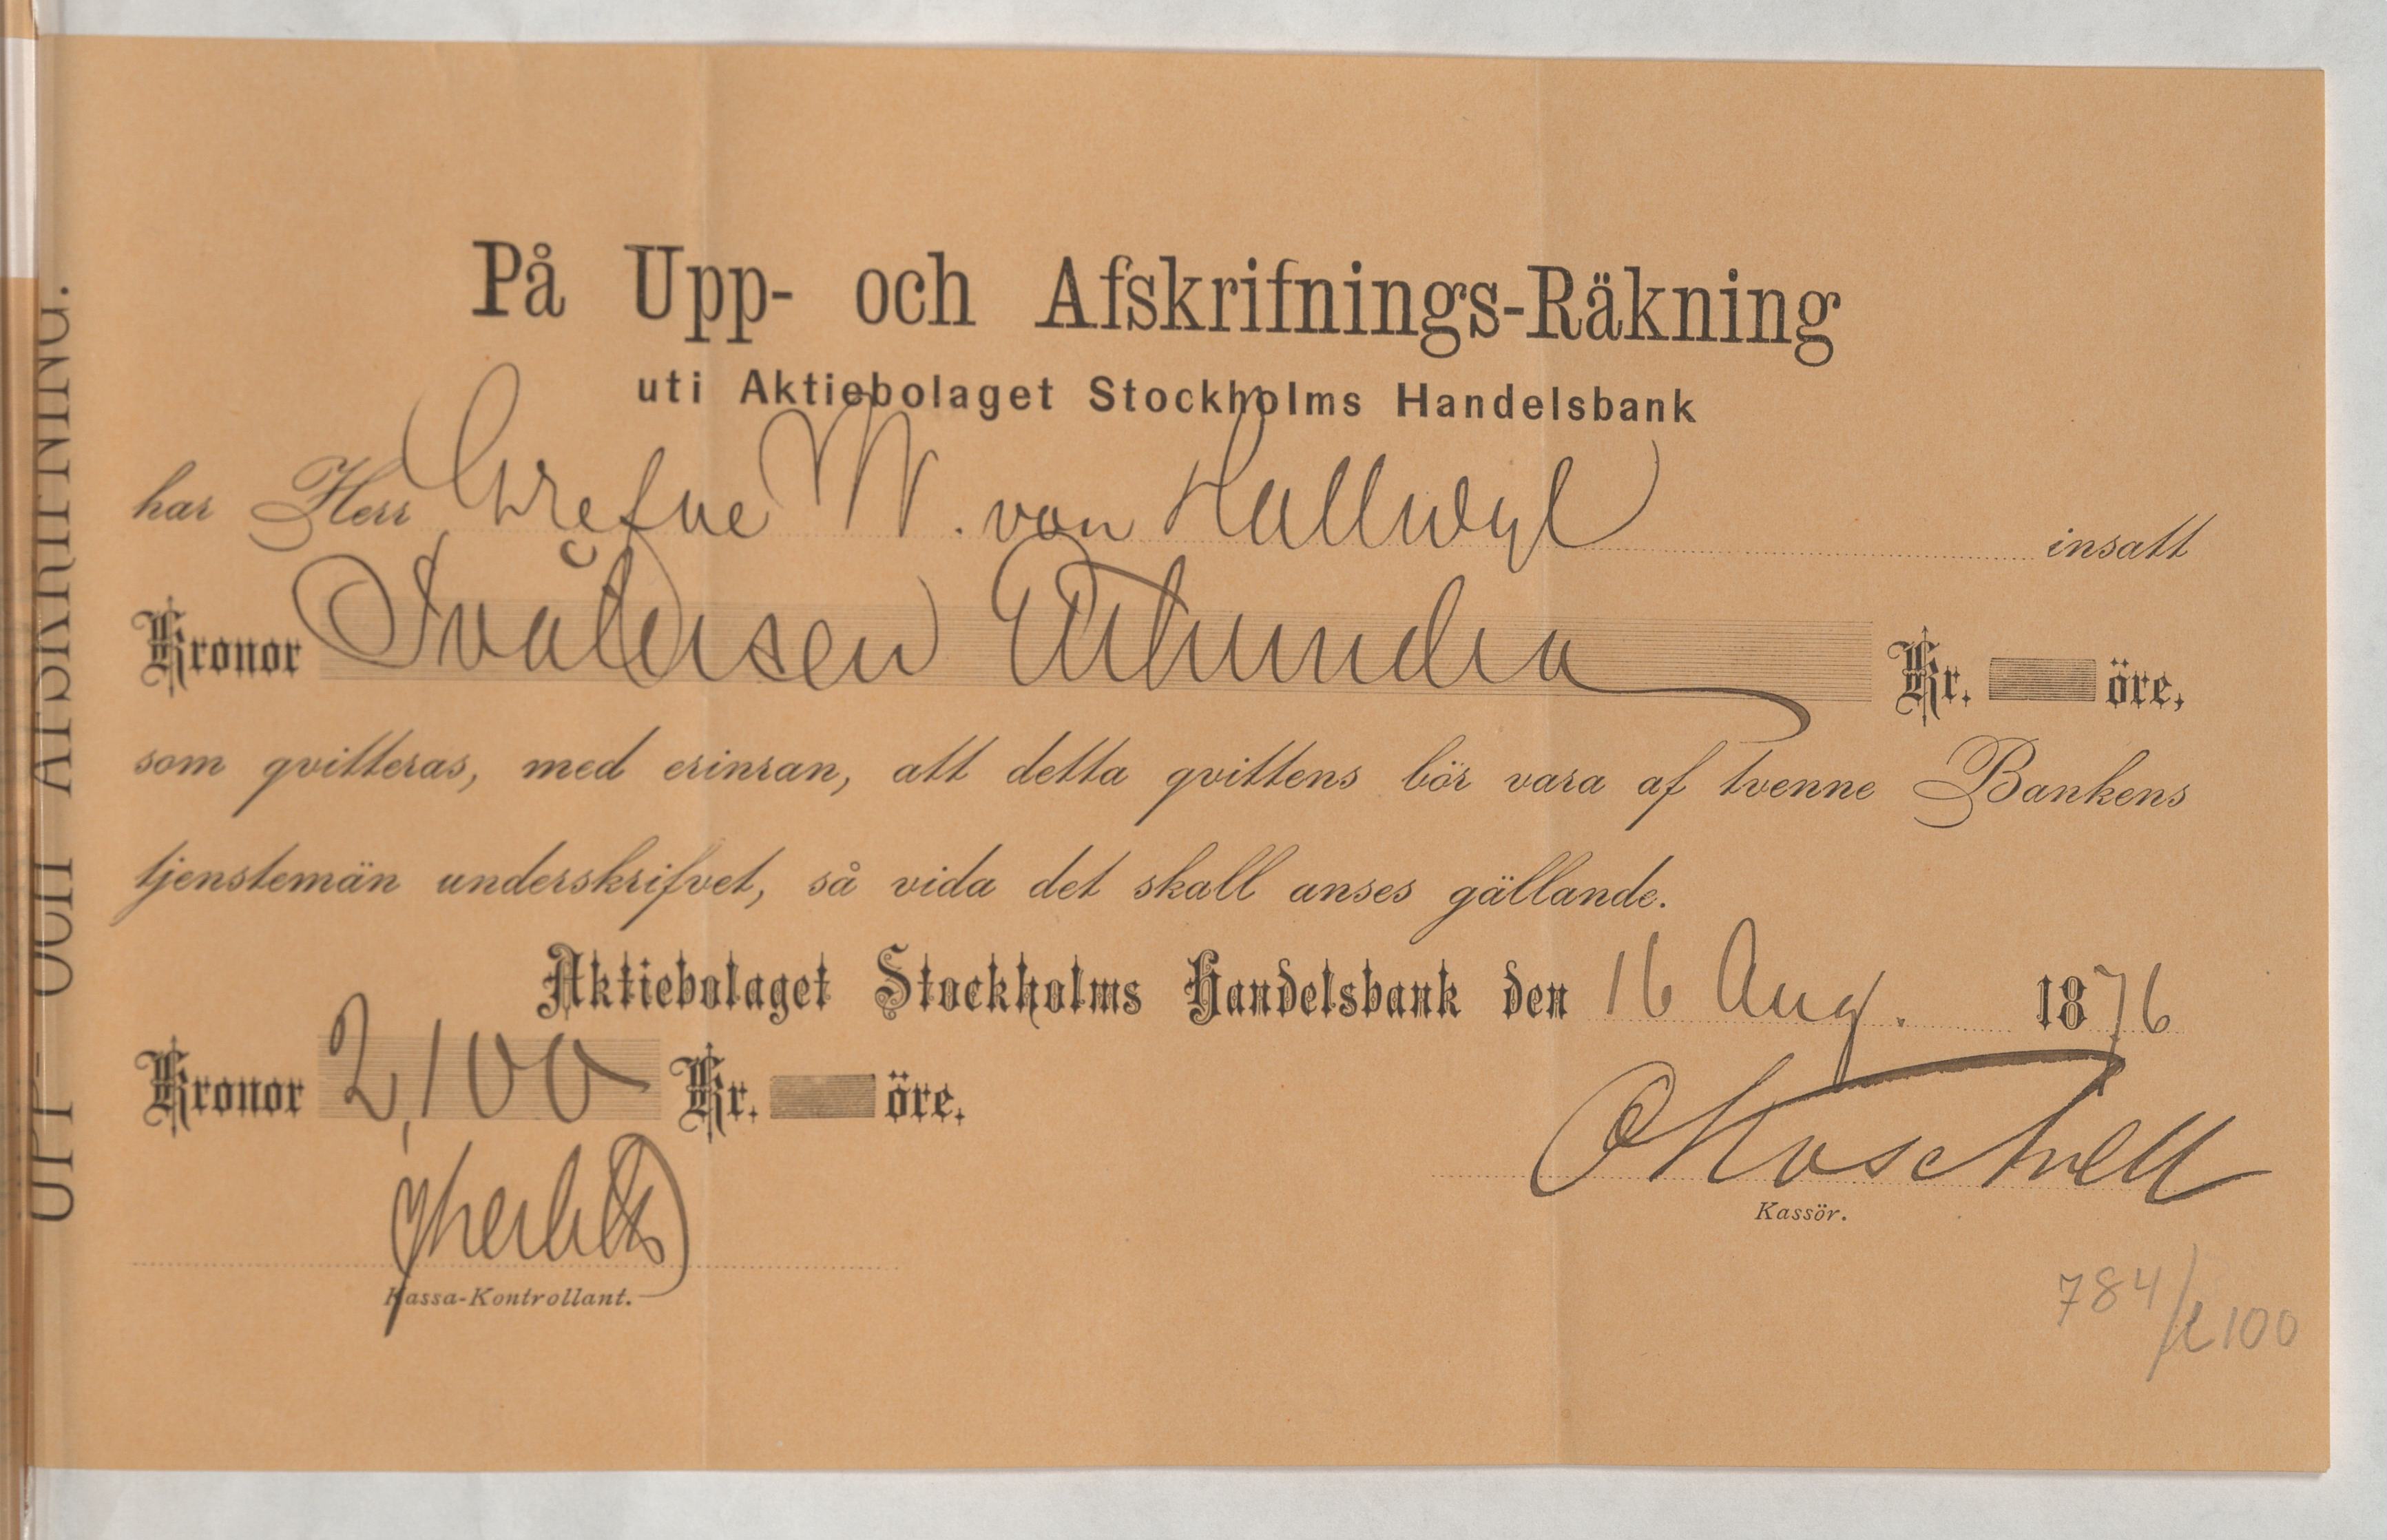 UPP- OCH AFSKRIFNING.
På Upp- och Afskrifnings-Räkning
uti Aktiebolaget Stockholms Handelsbank
har Herr Grefve W. von Hallwyl insatt
Kronor Tvåtusen Etthundra Kr. öre,
som qvitteras, med erinran, att detta qvittens bör vara af tvenne Bankens
tjenstemän underskrifvet, så vida det skall anses gällande.
Aktiebolaget Stockholms Handelsbank den 16 Aug. 1876
Kronor 2,100 Kr. öre.
Kassör.
Kassa-Kontrollant.
784/2100